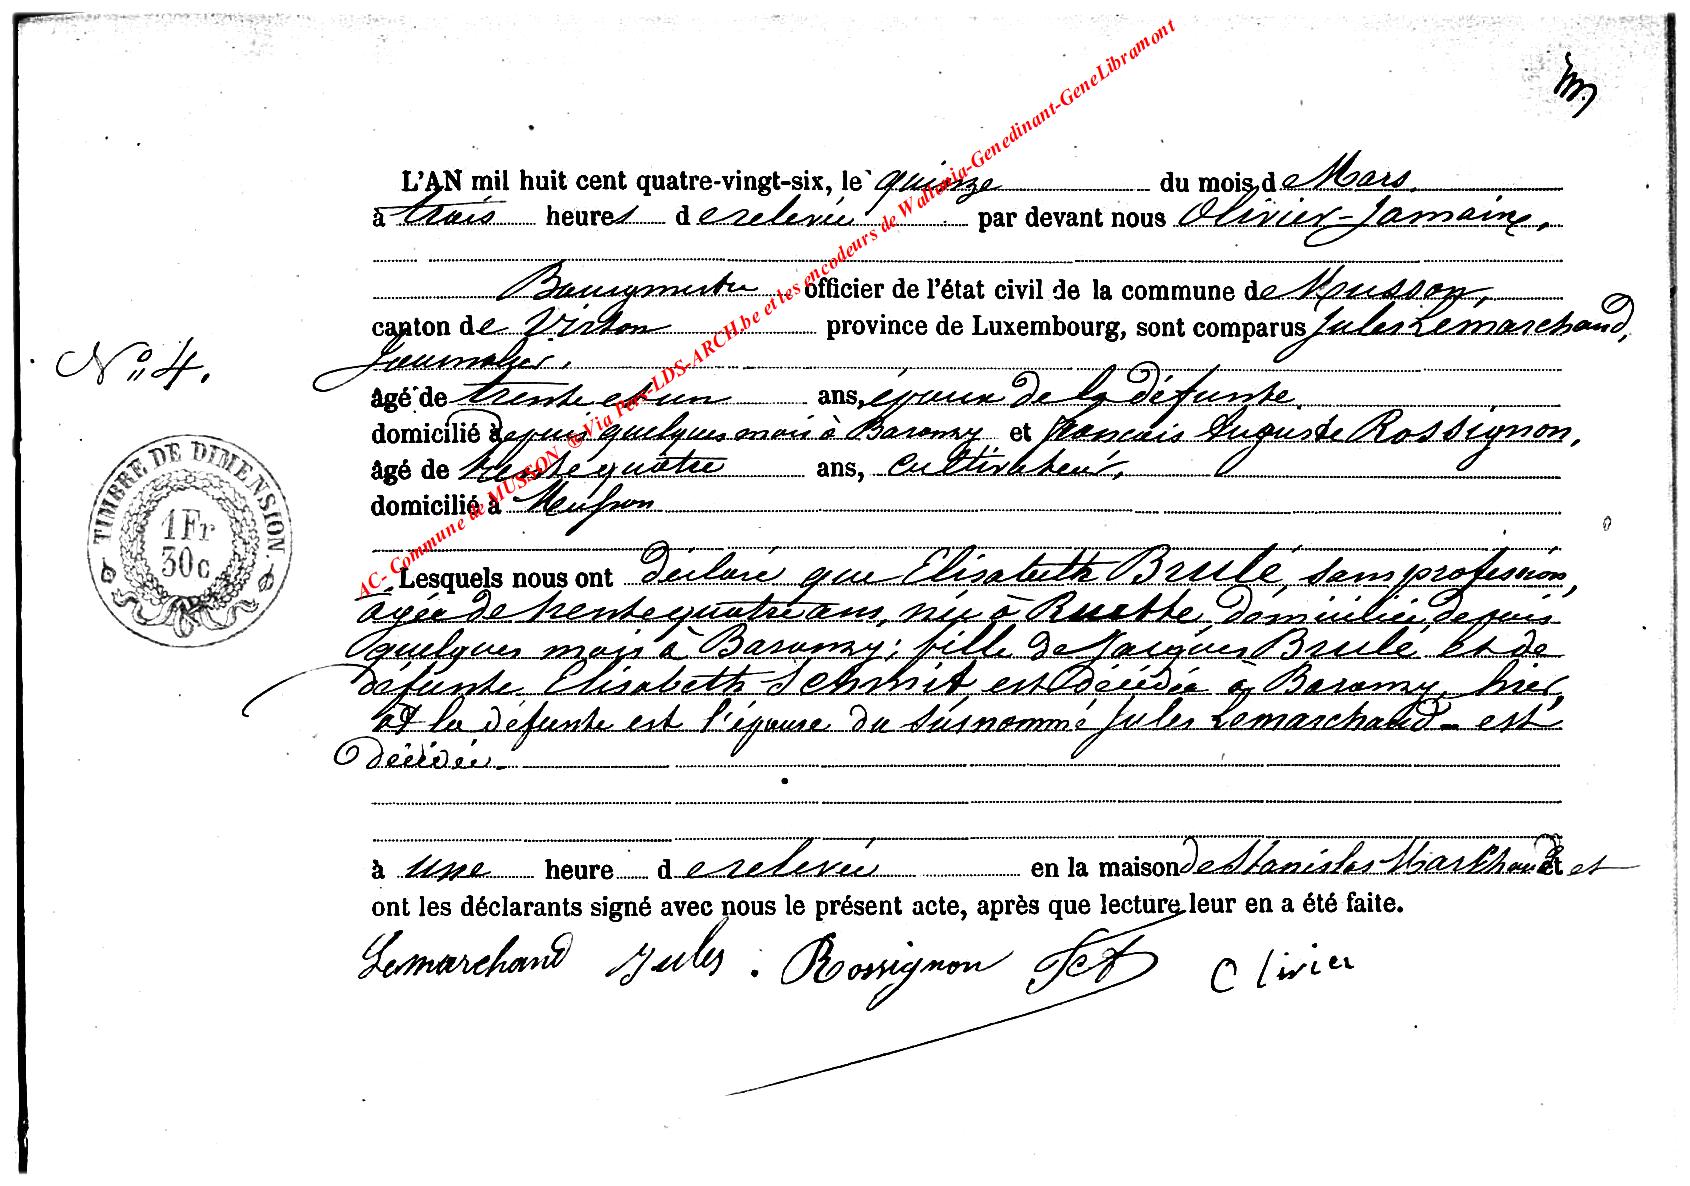 L'AN mil huit cent quatre-vingt-six, le quinze du mois de Mars.
à trois heures de relevée par devant nous Olivier-Jamaine,
Bourgmestre officier de l'état civil de la commune de Musson,
canton de Virton province de Luxembourg, sont comparus Jules Lemarchand,
Journalier.
âgé de trente et un ans, époux de la défunte
domicilié depuis quelques mois à Baranzy et François Auguste Rossignon,
âgé de trente quatre ans, cultivateur,
domicilié à Musson
Lesquels nous ont déclaré que Elisabeth Brulé, sans profession,
âgée de trente quatre ans, née à Ruette, domiciliée depuis
quelques mois à Baranzy; fille de Jacques Brulé et de
défunte Elisabeth Schmit, est décédée à Baranzy, hier,
et la défunte est l'épouse du susnommé Jules Lemarchand - est
décédée.
à une heure de relevée en la maison de Stanislas Marchand et
ont les déclarants signé avec nous le présent acte, après que lecture leur en a été faite.
Lemarchand Jules. Rossignon Olivier
N° 4.
TIMBRE DE DIMENSION
1 Fr
30 c
AC- Commune de MUSSON ® Via Pers-LDS-ARCH.be et les encodeurs de Wallonia-Genedinant-GeneLibramont